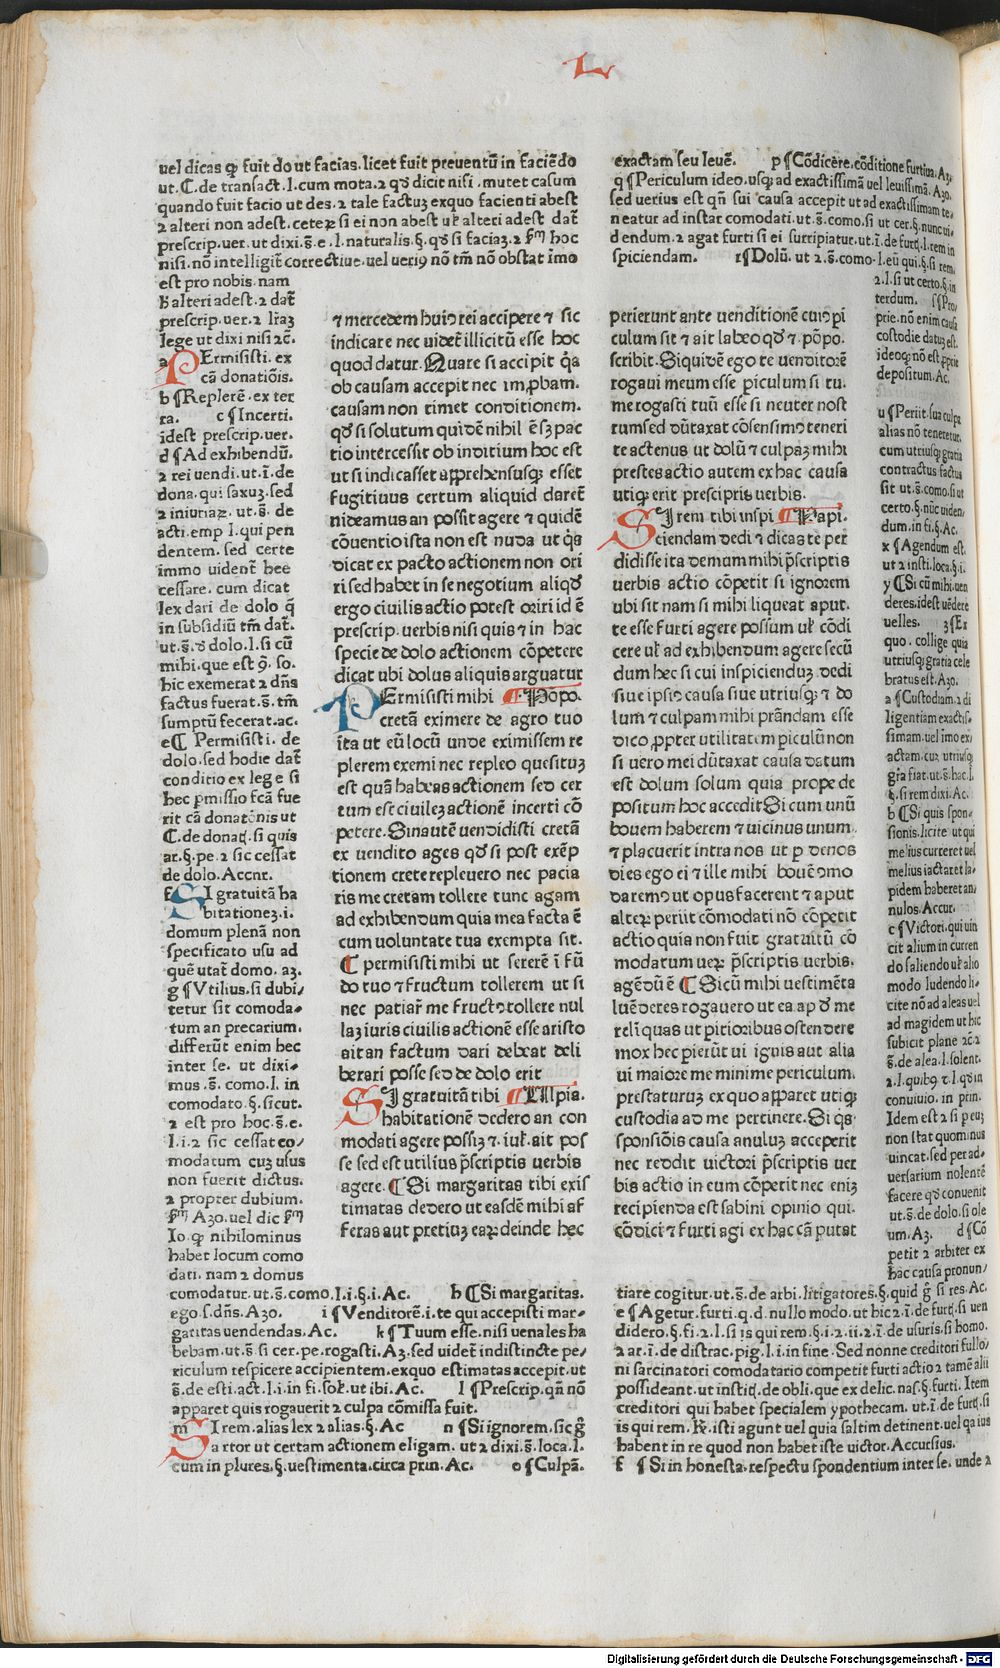 L
uel dicas ꝙ fuit do ut facias. licet fuit preuentū in faciēdo
ut. C. de transact. l. cum mota. ⁊ qđ dicit nisi. mutet casum
quando fuit facio ut des. ⁊ tale factuꝫ exquo facienti abest
⁊ alteri non adest. ceteꝝ si ei non abest uł alteri adest dat̄
prescrip. uer. ut dixi. s̄. e. l. naturalis. §. qđ si faciaꝫ. ⁊ hoc
nisi. nō intelligit̄ correctiue. uel ueriꝰ nō tm̄ nō obstat imo
est pro nobis. nam
alteri adest. ⁊ dat̄
prescrip. uer. ⁊ lr̄aꝫ
lege ut dixi nisi ⁊c̄.
a PErmisisti. ex
cā donatiōis.
b ¶ Replerē. ex ter
ra. c ¶ Incerti.
idest prescrip. uer.
d ¶ Ad exhibendū.
⁊ rei uendi. ut. ī. de
dona. qui saxuꝫ. sed
⁊ iniuriaꝝ. ut. s̄. de
acti. emp l. qui pen
dentem. sed certe
immo uident̄ hee
cessare. cum dicat
lex dari de dolo q̄
in subsidiū tm̄ dat̄.
ut. s̄. đ dolo. l. si cū
mihi. que est 9̄. so.
hic exemerat ⁊ dn̄s
factus fuerat. s̄. tm̄
sumptū fecerat. ac.
e ¶ Permisisti. de
dolo. sed hodie dat̄
conditio ex lege si
hec ꝑmissio fcā fue
rit cā donatōnis ut
C. de donat̄. si quis
ar. §. pe. ⁊ sic cessat
de dolo. Accur.
f SI gratuitā ha
bitationeꝫ. i.
domum plenā non
specificato usu ad
quē utat̄ domo. aꝫ.
g ¶ Vtilius. si dubi
tetur sit comoda
tum an precarium.
differūt enim hec
inter se. ut dixi
mus. s̄. como. l. in
comodato. §. sicut.
⁊ est pro hoc. s̄. e.
l. i. ⁊ sic cessat co
modatum cuꝫ usus
non fuerit dictus.
⁊ propter dubium.
Aꝫo. uel dic
Io. ꝙ nihilominus
habet locum como
dati. nam ⁊ domus
comodatur. ut. s̄. como. l. i. §. i. Ac. h ¶ Si margaritas.
ego. s. dn̄s. Aꝫo. i ¶ Venditorē. i. te qui accepisti mar
garitas uendendas. Ac. k ¶ Tuum esse. nisi uenales ha
bebam. ut. s̄. si cer. pe. rogasti. Aꝫ. sed uidet̄ indistincte pe
riculum respicere accipientem. exquo estimatas accepit. ut
s̄. de esti. act. l. i. in fi. soł. ut ibi. Ac. l ¶ Prescrip. qn̄ nō
apparet quis rogauerit ⁊ culpa cōmissa fuit.
m SI rem. alias lex ⁊ alias. §. Ac n ¶ Si ignorem. sic ḡ
a rtor ut certam actionem eligam. ut ⁊ dixi. s̄. loca. l.
cum in plures. §. uestimenta. circa prin. Ac. o ¶ Culpā.
⁊ mercedem huiꝰ rei accipere ⁊ sic
indicare nec uidet̄ illicitū esse hoc
quod datur. Quare si accipit q̄a
ob causam accepit nec improbam.
causam non timet conditionem.
qđ si solutum quidē nihil ē sꝫ pac
tio intercessit ob inditium hoc est
ut si indicasset apprehensusqꝫ esset
fugitiuus certum aliquid daret̄
uideamus an possit agere ⁊ quidē
cōuentio ista non est nuda ut q̄s
dicat ex pacto actionem non ori
ri sed habet in se negotium aliqđ
ergo ciuilis actio potest oriri id ē
prescrip. uerbis nisi quis ⁊ in hac
specie de dolo actionem cōpetere
dicat ubi dolus aliquis arguatur
PErmisisti mihi ¶ Popo.
cretā eximere de agro tuo
ita ut eū locū unde eximissem re
plerem exemi nec repleo quesituꝫ
est quā habeas actionem sed cer
tum est ciuileꝫ actionē incerti cō
petere. Sin autē uendidisti cretā
ex uendito ages qđ si post exēp
tionem crete repleuero nec pacia
ris me cretam tollere tunc agam
ad exhibendum quia mea facta ē
cum uoluntate tua exempta sit.
¶ permisisti mihi ut sererē ī fū
do tuo ⁊ fructum tollerem ut si
nec patiar̄ me fructꝰ tollere nul
laꝫ iuris ciuilis actionē esse aristo
ait an factum dari debeat deli
berari posse sed de dolo erit
SI gratuitā tibi ¶ Ulpia.
habitationē dedero an com
modati agere possiꝫ ⁊. iuł. ait pos
se sed est utilius p̄scriptis uerbis
agere. ¶ Si margaritas tibi exis
timatas dedero ut easdē mihi af
feras aut pretiuꝫ eaꝝ deinde hec
exactam seu leuē. p ¶ Cōdicère. cōditione furtiua. Aꝫ.
q ¶ Periculum ideo. usqꝫ ad exactissimā uel leuissimā. Aꝫo.
sed uerius est qn̄ sui causa accepit ut ad exactissimam te
neatur ad instar comodati. ut. s̄. como. si ut cer. §. nunc ui
dendum. ⁊ agat furti si ei surripiatur. ut. ī. de furt̄. l. rem in
spiciendam. r ¶ Dolū. ut ⁊. s̄. como. l. eū qui. §. si rem.
⁊. l. si ut certo. §. in
terdum. s ¶ Pro
prie. nō enim causa
costodie datuꝫ est.
ideoqꝫ nō est ꝓprie
depositum. Ac.
u ¶ Periit. sua culpa
alias nō teneretur.
cum utriusqꝫ gratia
contractus factus
sit ut. s̄. como. si ut
certo. §. nūc uiden
dum. in fi. §. Ac.
x ¶ Agendum est.
ut ⁊ insti. loca. §. i.
y ¶ Si cū mihi. uen
deres. idest uēdere
uelles. ꝫ ¶ Ex
quo. collige quia
utriusqꝫ gratia cele
bratus est. Aꝫo.
a ¶ Custodiam. ⁊ di
ligentiam exactis
simam. uel īmo ex
actam. cuꝫ utriusqꝫ
gr̄ia fiat. ut. s̄. hac. l.
§. si rem dixi. Ac.
b ¶ Si quis spon
sionis. licite ut qui
melius curreret uel
melius iactaret la
pidem haberet an
nulos. Accur.
c ¶ Victori. qui uin
cit alium in curren
do saliendo uł alio
modo ludendo li
cite nō ad aleas uel
ad magidem ut hic
subicit plane ⁊c̄ ⁊
s̄. de alea. l. solent.
⁊. l. quibꝰ. ⁊. l. qđ in
conuiuio. in prin.
Idem est ⁊ si p eꝫ
non stat quominus
uincat. sed per ad
uersarium nolentē
facere qđ conuenit
ut. s̄. de dolo. si ole
um. Aꝫ. d ¶ Cō
petit ⁊ arbiter ex
hac causa pronun
tiare cogitur. ut. s̄. de arbi. litigatores. §. quid ḡ si res. Ac.
e ¶ Agetur. furti. q. d. nullo modo. ut hic ⁊. ī. de furt̄. si uen
didero. §. fi. ⁊. l. si is qui rem. §. i. ⁊. ii. ⁊. ī. de usuris. si homo.
⁊ ar. ī. de distrac. pig. l. i. in fine. Sed nonne creditori fullo
ni sarcinatori comodatario competit furti actio ⁊ tamē alii
possideant. ut instit̄. de obli. que ex delic. nas. §. furti. Item
creditori qui habet specialem ypothecam. ut. ī. de furt̄. si
is qui rem. R̄. isti agunt uel quia saltim detinent. uel qa ius
habent in re quod non habet iste uictor. Accursius.
f ¶ Si in honesta. respectu spondentium inter se. unde ⁊
perierunt ante uenditionē cuiꝰ pi
culum sit ⁊ ait labeo qđ ⁊. pōpo.
scribit. Siquidē ego te uenditorē
rogaui meum esse piculum si tu.
me rogasti tuū esse si neuter nost
rum sed dūtaxat cōsensimꝰ teneri
te actenus ut dolū ⁊ culpaꝫ mihi
prestes actio autem ex hac causa
utiqꝫ erit prescriptis uerbis.
SI rem tibi inspi ¶ Papi.
ciendam dedi ⁊ dicas te per
didisse ita demum mihi p̄scriptis
uerbis actio cōpetit si ignorem
ubi sit nam si mihi liqueat aput.
te esse furti agere possum uł cōdi
cere uł ad exhibendum agere secū
dum hec si cui inspicienduꝫ dedi
siue ipsiꝰ causa siue utriusqꝫ ⁊ do
lum ⁊ culpam mihi prandam esse
dico ꝓpter utilitatem piculū non
si uero mei dūtaxat causa datum
est dolum solum quia prope de
positum hoc accedit Si cum unū
bouem haberem ⁊ uicinus unum.
⁊ placuerit intra nos ut p denos
dies ego ei ⁊ ille mihi bouē cōmo
daremꝰ ut opus facerent ⁊ aput
alteꝝ periit cōmodati nō cōpetit
actio quia non fuit gratuitū cō
modatum ueꝝ p̄scriptis uerbis.
agēdū ē ¶ Si cū mihi uestimēta
luēderes rogauero ut ea. ap đ me
relīquas ut pitioribus ostendere
mox hec pierūt ui ignis aut alia
ui maiore me minime periculum.
prestaturuꝫ ex quo apparet utiqꝫ
custodia ad me pertinere. Si q̄s
sponsiōis causa anulus acceperit
nec reddit uictori p̄scriptis uer
bis actio in eum cōpetit nec eniꝫ
recipienda est sabini opinio qui.
cōdici ⁊ furti agi ex hac cā putat
Digitalisierung gefördert durch die Deutsche Forschungsgemeinschaft - DFG